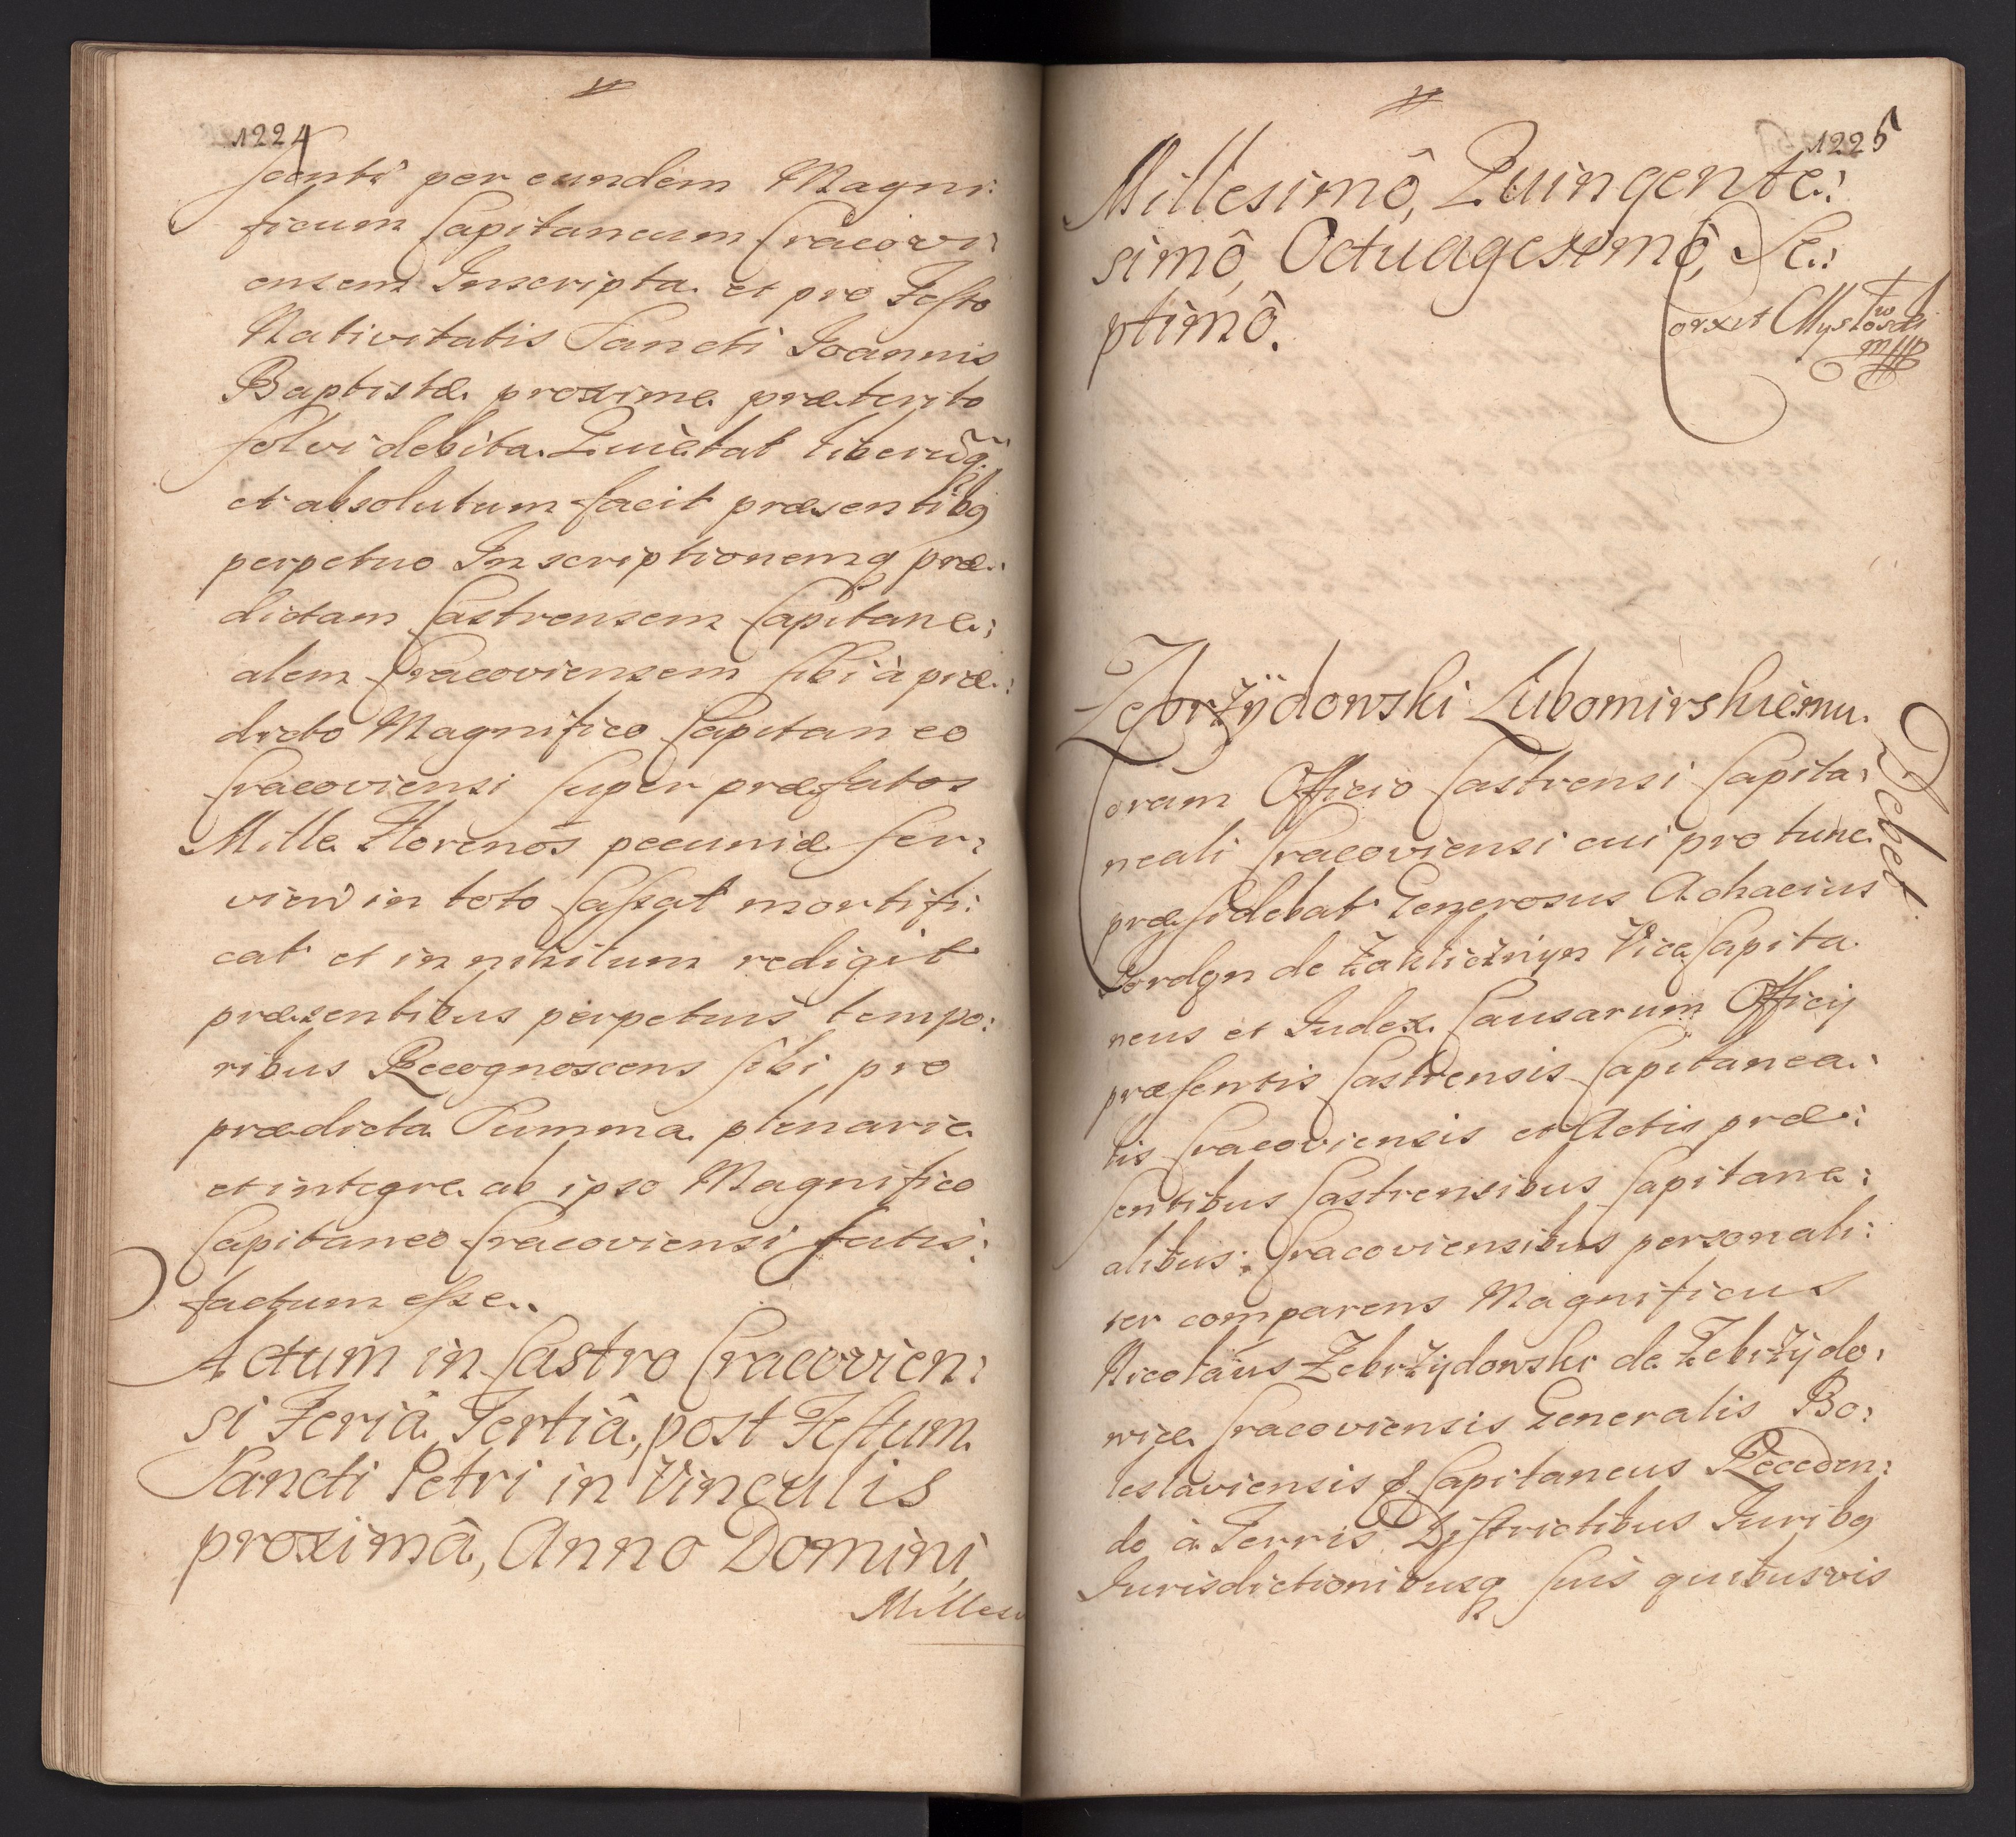 1224
scenti per eundem Magni:
ficum Capitaneum Cracovi:
ensem Inscripta et pro Festo
Nativitatis Sancti Joannis
Baptistæ proxime præterito
solvi debita. Quietat liberũq;
et absolutum facit præsentibq
perpetuo Inscriptionemq præ:
dictam Castrensem Capitane:
alem Cracoviensem sibi à præ:
dicto Magnifico Capitaneo
Cracoviensi super præfatos
Mille Florenos pecuniæ ser:
vien in toto Cassat mortifi:
cat et in nihilum redigit
præsentibus perpetuis tempo:
ribus Recognoscens sibi pro
prædicta Summa plenarie
et integre ab ipso Magnifico
Capitaneo Cracoviensi satis:
factum esse.
Actum in Castro Cracovien:
si Feriâ Tertiâ, post Festum
Sancti Petri in Vinculis
proximâ, Anno Domini,
Millesi
1225
Millesimô, Quingente:
simô, Octuagesimô, Se:
ptimô.
Corxit
Zebrżÿdowski Lubomirskiemu.
Debet
Coram Officio Castrensi Capita:
neali Cracoviensi cui pro tunc
præsidebat Generosus Achacius
Jordan de Zakliczyn Vice Capita
neus et Judex Causarum Officij
præsentis Castrensis Capitanea:
lis Cracoviensis et Actis præ:
sentibus Castrensibus Capitane:
alibus Cracoviensibus personali:
ter comparens Magnificus
Nicolaus Zebrżydowski de Zebrżydo:
wice Cracoviensis Generalis Bo:
leslaviensis & Capitaneus Receden:
do à Terris Districtibus Juribq
Jurisdictionibusq suis quibusvis